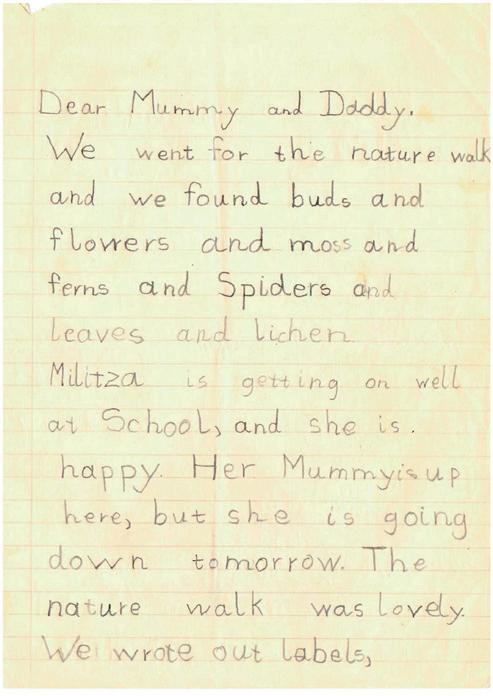 Dear Mummy and Daddy.
We went for the nature walk
and we found buds and
flowers and moss and
ferns and Spiders and
leaves and lichen
Militza is getting on well
at School, and she is.
happy. Her Mummy is up
here, but she is going
down tomorrow. The
nature walk was lovely.
We wrote out labels,